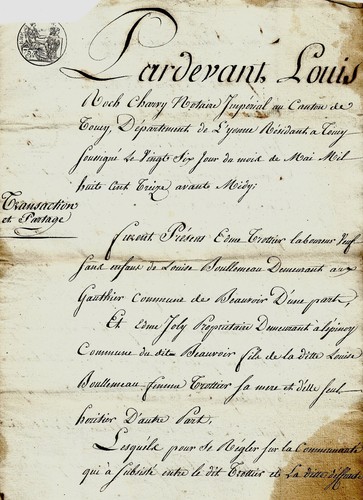 Pardevant Louis
Roch Charry Notaire Impérial au Canton de
Toucy, Département de L'yonne Résidant à Toucy
soussigné Le Vingt Six Jour du mois de Mai Mil
huit Cent Treize avant Midy;
Transaction
et Partage
furent Présens Edme Trottier laboureur Veuf
sans enfans de Louise Boullemeau Demeurant aux
Gauthier Commune de Beauvoir D'une part,
Et Edme Joly Propriétaire Demeurant à l'épinoy
Commune du dit Beauvoir fils de la ditte Louise
Boullemeau femme Trottier sa mere et d'elle seul
heritier D'autre Part,
Lesquels pour se Regler sur la Communauté
qui a subsisté entre le dit Trottier et La ditte deffunte